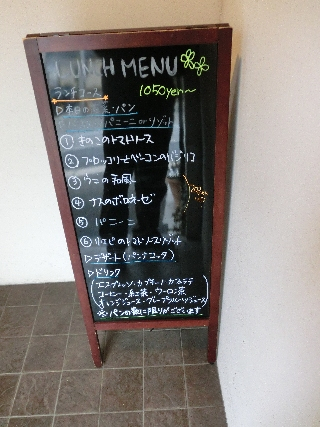 LUNCH MENU
ランチコース
1050yen〜
▷本日の前菜・パン
パニーニ orリゾット
① きのこのトマトソース
② ブロッコリーとベーコンの
③ ウニの和風
④ ナスのボロネーゼ
⑤ パニーニ
⑥ 小エビのトマトリゾット
▷デザート(パンナコッタ)
▷ドリンク
エスプレッソ・カプチーノ カフェラテ
コーヒー・紅茶・ウーロン茶
オレンジジュース・グレープフルーツジュース
※パンの数に限りがございます